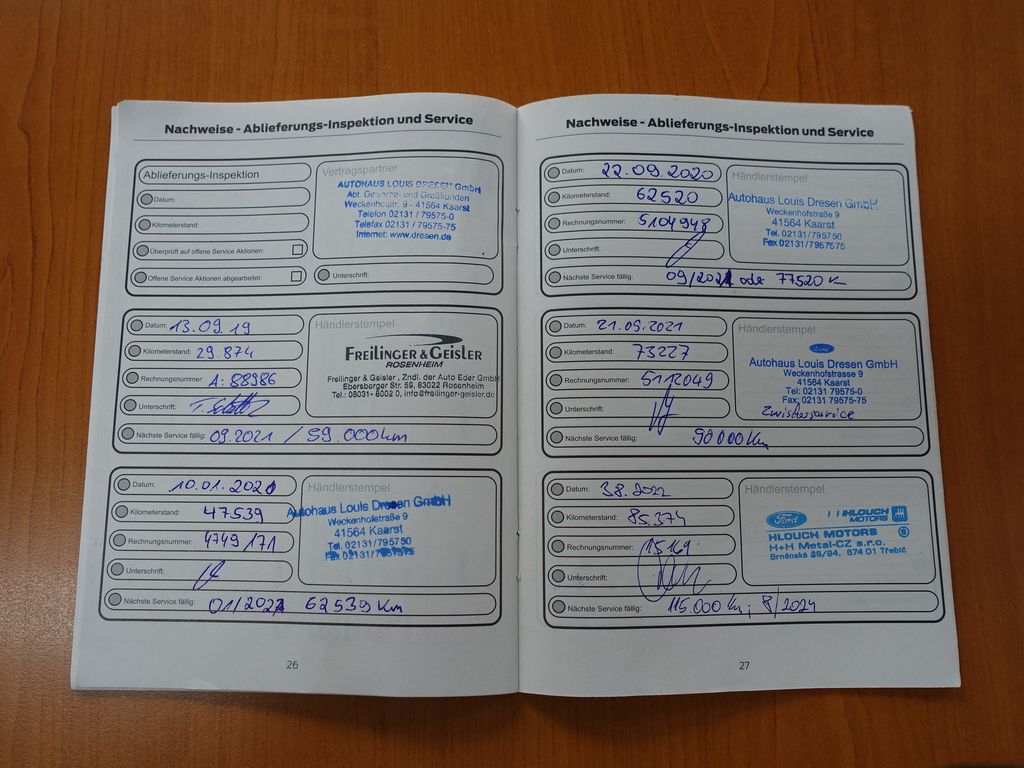 Nachweise - Ablieferungs-Inspektion und Service
Ablieferungs-Inspektion
Datum:
Kilometerstand:
Überprüft auf offene Service Aktionen:
Offene Service Aktionen abgearbeitet:
Vertragspartner
AUTOHAUS LOUIS DRESEN GmbH
Abt. Gewerbe- und Großkunden
Weckenhofstr. 9 - 41564 Kaarst
Telefon 02131 / 79575-0
Telefax 02131 / 79575-75
Internet: www.dresen.de
Unterschrift:
Datum: 13.09.19
Kilometerstand: 29.874
Rechnungsnummer: A: 88986
Unterschrift:
Händlerstempel
FREILINGER & GEISLER
ROSENHEIM
Freilinger & Geisler, Zndl. der Auto Eder GmbH
Ebersberger Str. 59, 83022 Rosenheim
Tel.: 08031- 8002 0, info@freilinger-geisler.de
Nächste Service fällig: 09.2021 / 59.000km
Datum: 10.01.2020
Kilometerstand: 47539
Rechnungsnummer: 4749171
Unterschrift:
Händlerstempel
Autohaus Louis Dresen GmbH
Weckenhofstraße 9
41564 Kaarst
Tel. 02131/795750
Fax 02131/7957575
Nächste Service fällig: 01/2021 62539 Km
26
Nachweise - Ablieferungs-Inspektion und Service
Datum: 22.09.2020
Kilometerstand: 62520
Rechnungsnummer: 5104948
Unterschrift:
Händlerstempel
Autohaus Louis Dresen GmbH
Weckenhofstraße 9
41564 Kaarst
Tel. 02131/795750
Fax 02131/7957575
Nächste Service fällig: 09/2021 oder 77520 Km
Datum: 21.09.2021
Kilometerstand: 73227
Rechnungsnummer:
Unterschrift:
Händlerstempel
Ford
Autohaus Louis Dresen GmbH
Weckenhofstrasse 9
41564 Kaarst
Tel: 02131 79575-0
Fax: 02131 79575-75
Zwischenservice
Nächste Service fällig: 90000 Km
Datum: 3.8.2022
Kilometerstand: 85.374
Rechnungsnummer: 15169
Unterschrift:
Händlerstempel
Ford HLOUCH MOTORS
HLOUCH MOTORS
H+H Metal-CZ s.r.o.
Brněnská 36/94, 674 01 Třebíč
Nächste Service fällig: 115.000 Km; 8/2024
27